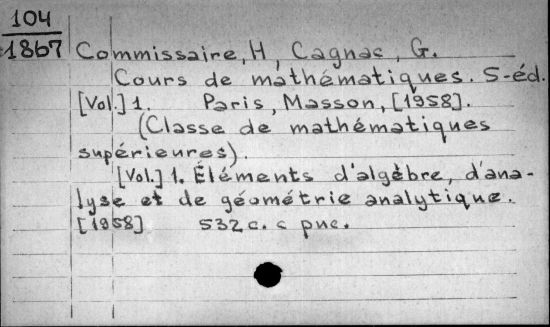 104
1867
Commissaire, H, Cagnac, G.
Cours de mathématiques. 5-éd.
[Vol.] 1. Paris, Masson, [1958].
(Classe de mathématiques
supérieures).
[Vol.] 1. Éléments d'algèbre, d'ana-
lyse et de géométrie analytique.
[1958] 532 c. с рис.